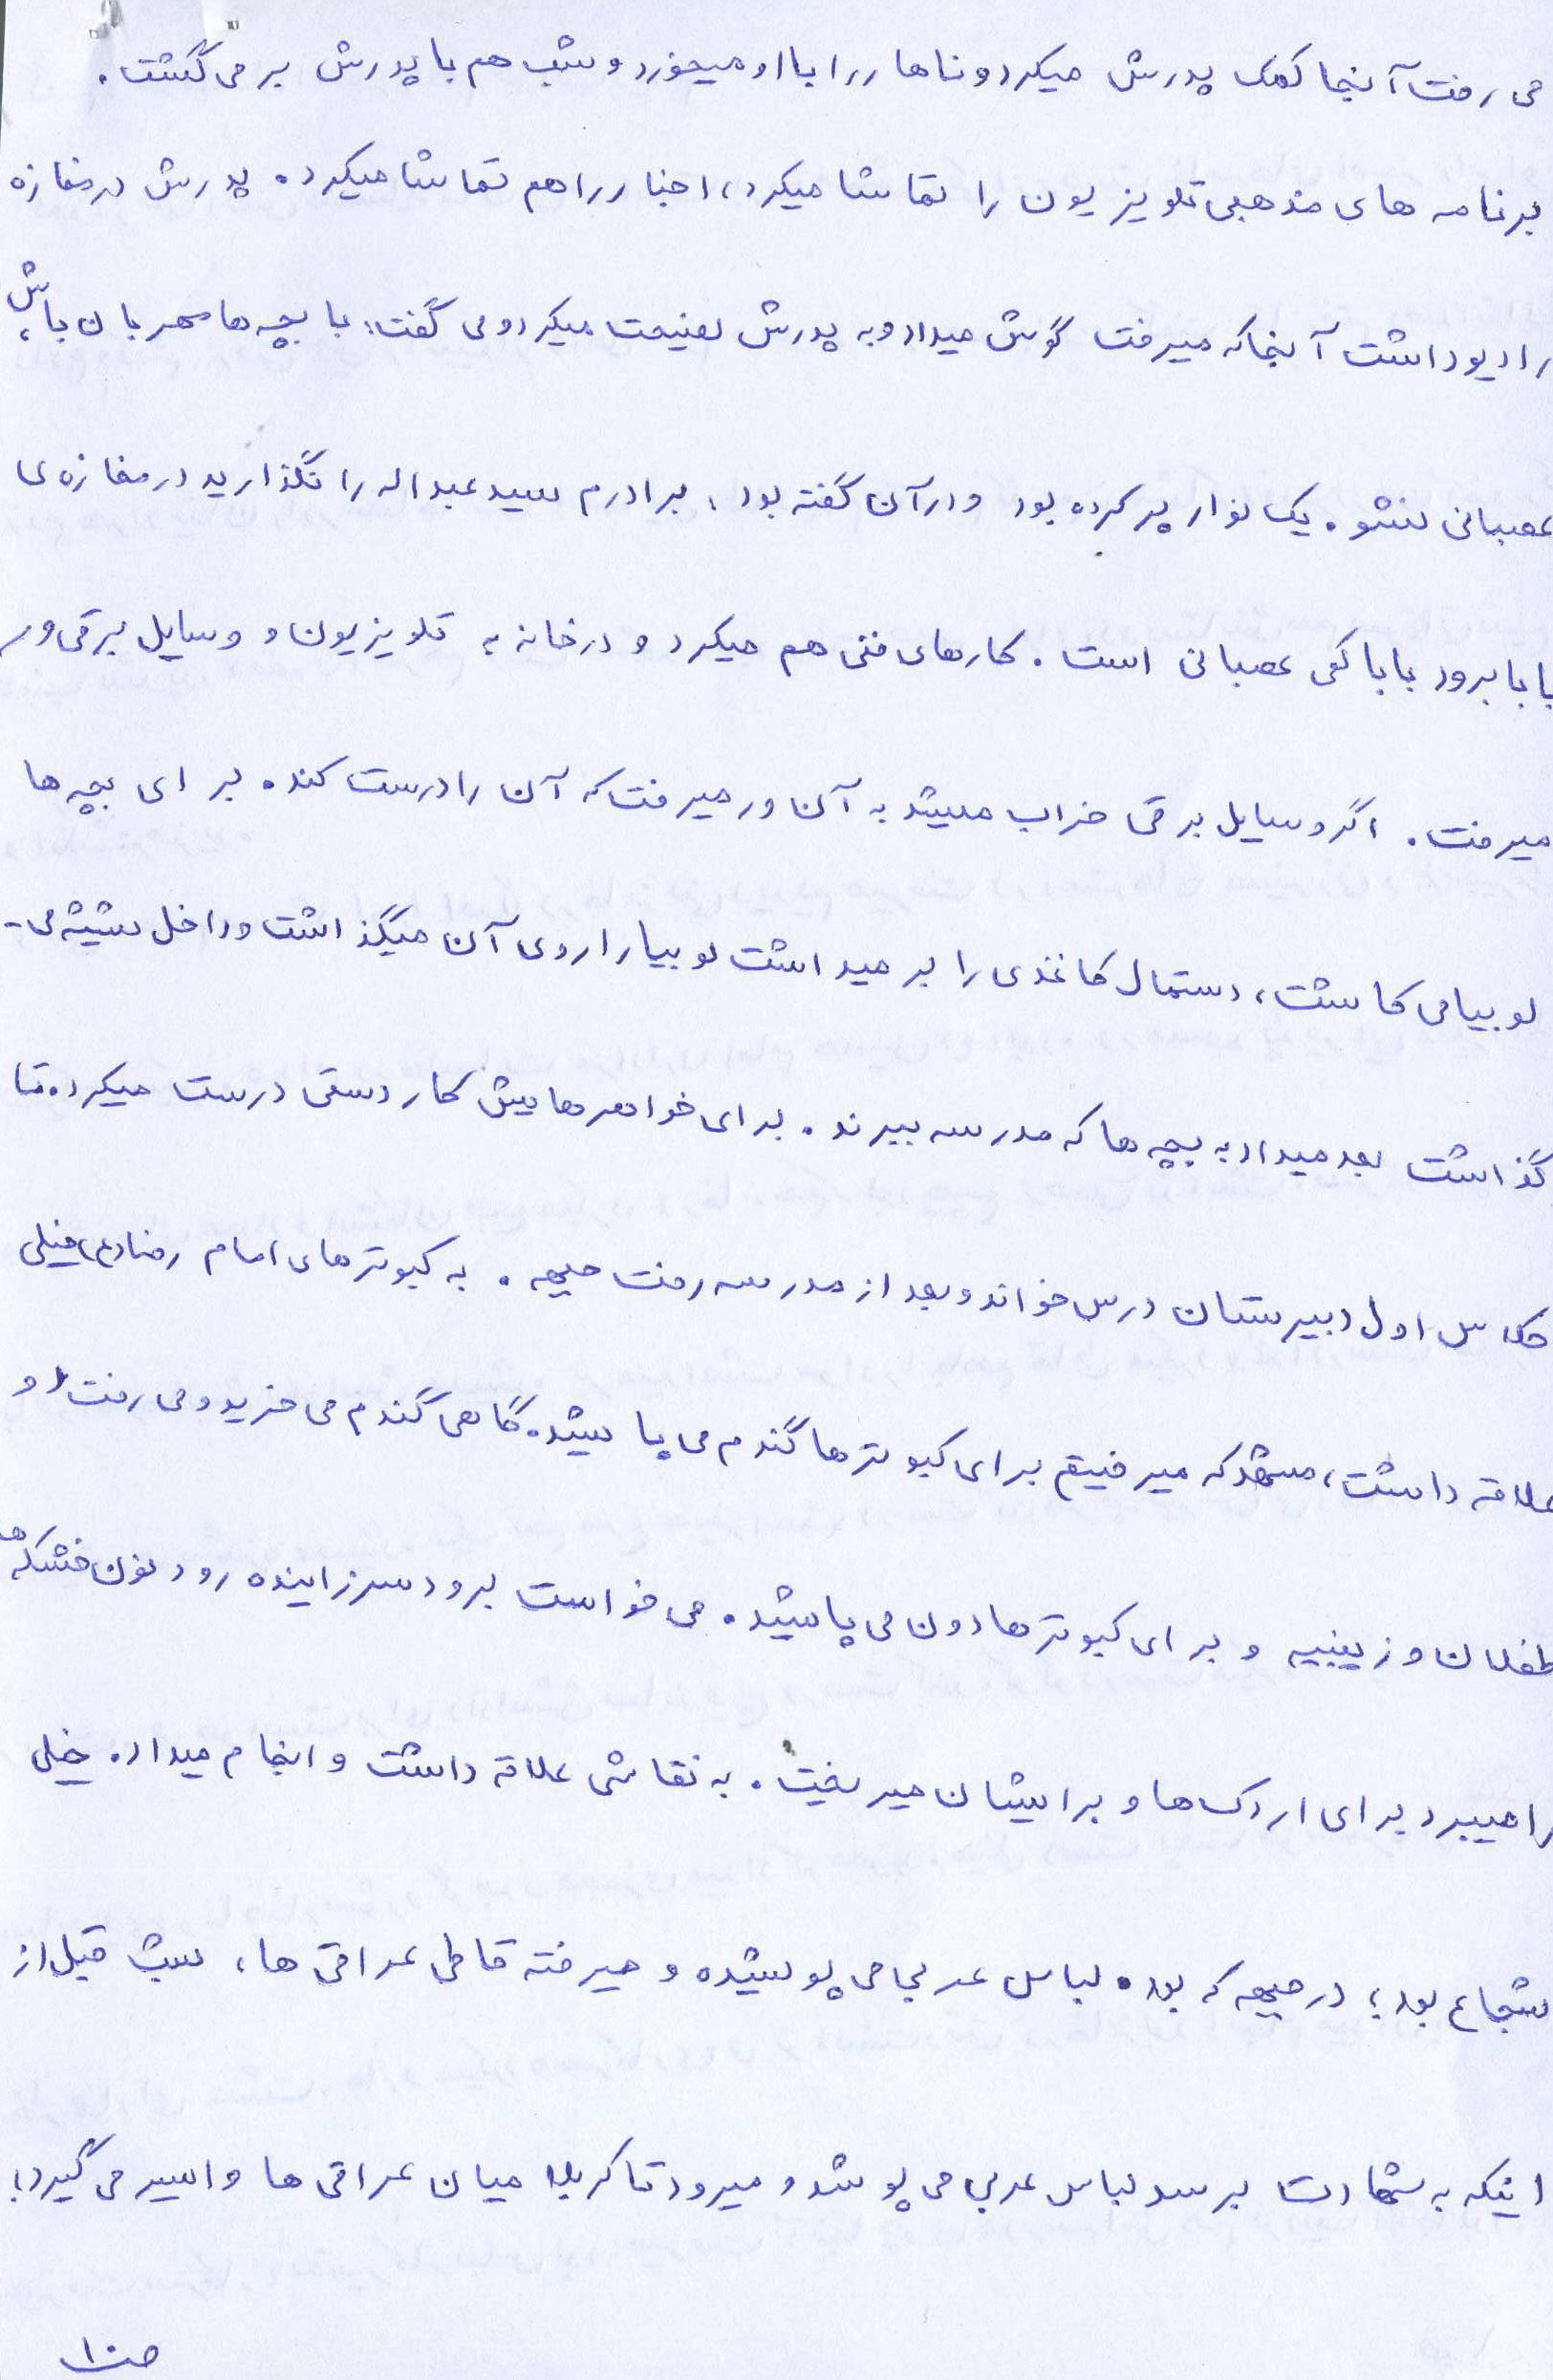 می رفت آنجا کمک پدرش میکرد و ناهار را با او میخورد و شب هم با پدرش بر می گشت.
برنامه های مذهبی تلویزیون را تماشا میکرد، اخبار را هم تماشا میکرد. پدرش در مغازه
رادیو داشت آنجا که میرفت گوش میداد و به پدرش نصیحت میکرد و می گفت: با بچه ها مهربان باش،
عصبانی نشو. یک نوار پر کرده بود و در آن گفته بود: برادرم سید عبداله را نگذارید در مغازه ی
بابا برود بابا کمی عصبانی است. کارهای فنی هم میکرد و در خانه به تلویزیون و وسایل برقی ور
میرفت. اگر وسایل برقی خراب میشد به آن ور میرفت که آن را درست کند. برای بچه ها
لوبیا می کاشت، دستمال کاغذی را بر میداشت لوبیا را روی آن میگذاشت و داخل شیشه می-
گذاشت بعد میداد به بچه ها که مدرسه ببرند. برای خواهرهایش کار دستی درست میکرد. تا
کلاس اول دبیرستان درس خواند و بعد از مدرسه رفت جبهه. به کبوترهای امام رضا (ع) خیلی
علاقه داشت، مشهد که میرفتیم برای کبوترها گندم می پاشید. گاهی گندم می خرید و می رفت و
طفلان و زینبیه و برای کبوترها دون می پاشید. می خواست برود سر زاینده رود نون خشک ها
را میبرد برای اردک ها و برایشان میریخت. به نقاشی علاقه داشت و انجام میداد. خیلی
شجاع بود؛ در جبهه که بود. لباس عربی می پوشیده و میرفته قاطی عراقی ها، شب قبل از
اینکه به شهادت برسد لباس عربی می پوشد و میرود تا کربلا میان عراقی ها و اسیر می گیرد؛
ص۱۰